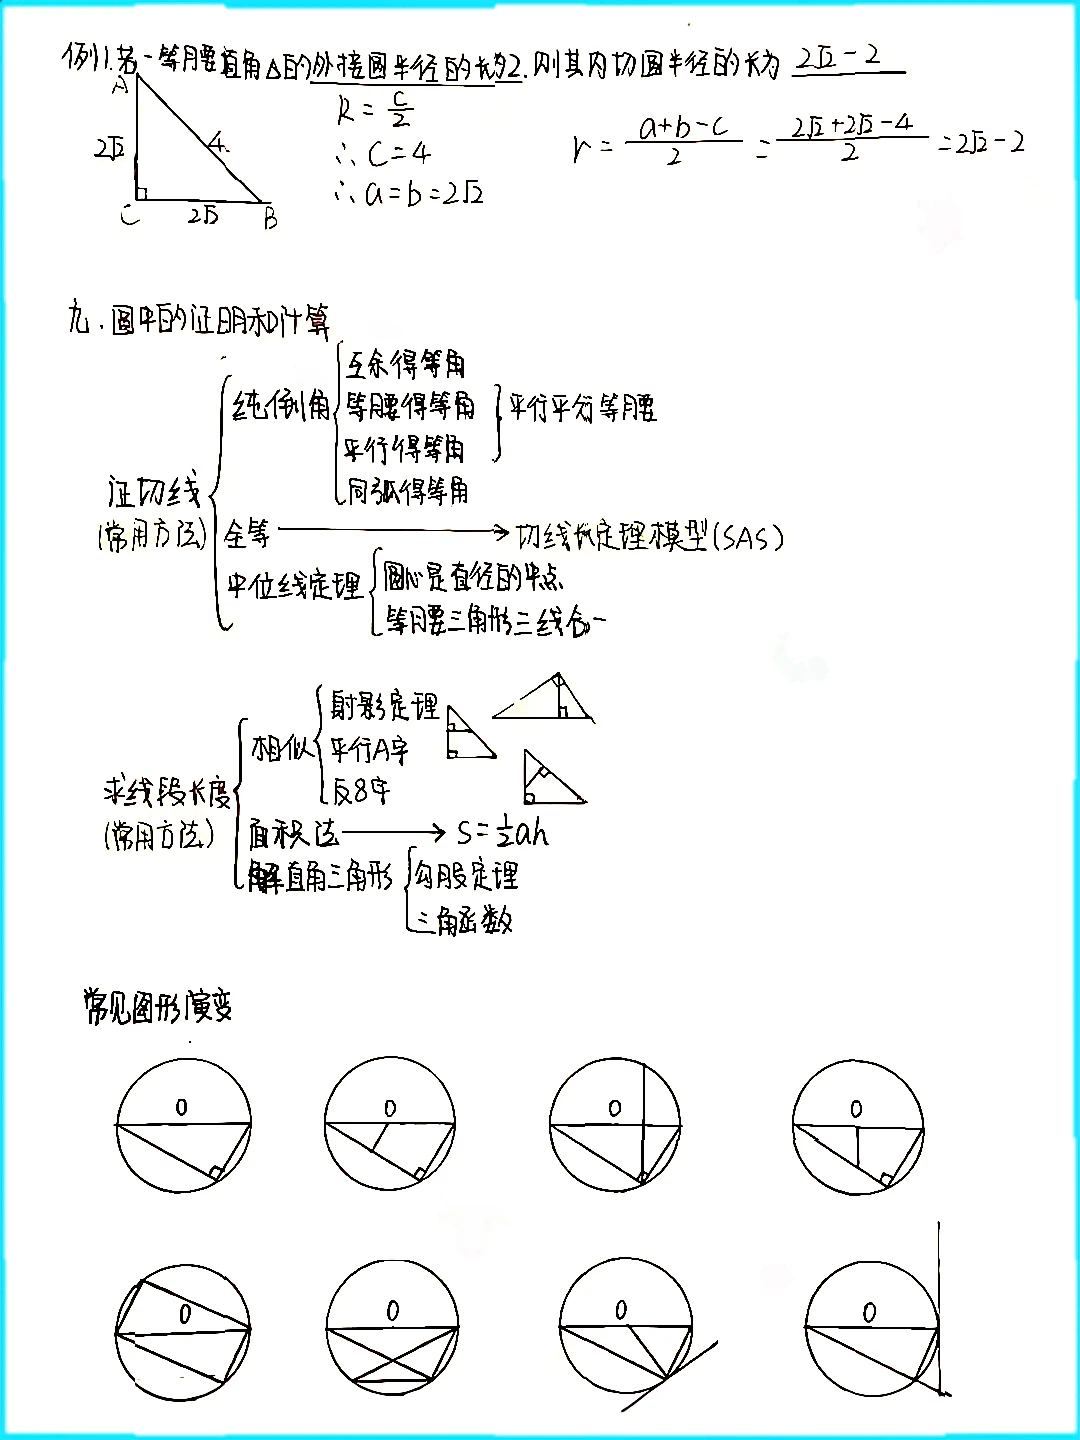 例1.若一等腰直角△的外接圆半径的长为2.则其内切圆半径的长为 2√2-2
A
R=c/2
r=(a+b-c)/2=(2√2+2√2-4)/2=2√2-2
2√2
4
∴C=4
∴a=b=2√2
C
2√2
B
九.圆中的证明和计算
互余得等角
纯倒角
等腰得等角
平行平分等腰
平行得等角
证切线
同弧得等角
(常用方法)
全等
切线长定理模型(SAS)
中位线定理
圆心是直径的中点
等腰三角形三线合一
射影定理
相似
平行A字
求线段长度
反8字
(常用方法)
面积法
S=½ah
解直角三角形
勾股定理
三角函数
常见图形演变
O
O
O
O
O
O
O
O